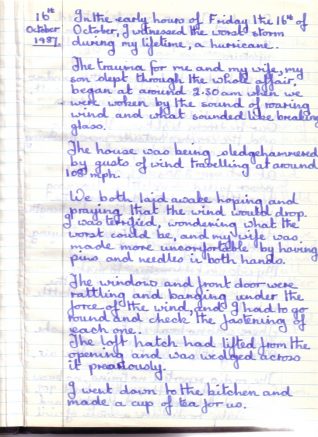 16th October 1987.
In the early hours of Friday the 16th of
October, I witnessed the worst storm
during my lifetime, a hurricane.
The trauma for me and my wife, my
son slept through the whole affair,
began at around 2.30am when we
were woken by the sound of roaring
wind and what sounded like breaking
glass.
The house was being sledgehammered
by gusts of wind travelling at around
108 mph.
We both laid awake hoping and
praying that the wind would drop.
I was terrified, wondering what the
worst could be, and my wife was
made more uncomfortable by having
pins and needles in both hands.
The windows and front door were
rattling and banging under the
force of the wind, and I had to go
round and check the fastening of
each one.
The loft hatch had lifted from the
opening and was wedged across
it precariously.
I went down to the kitchen and
made a cup of tea for us.